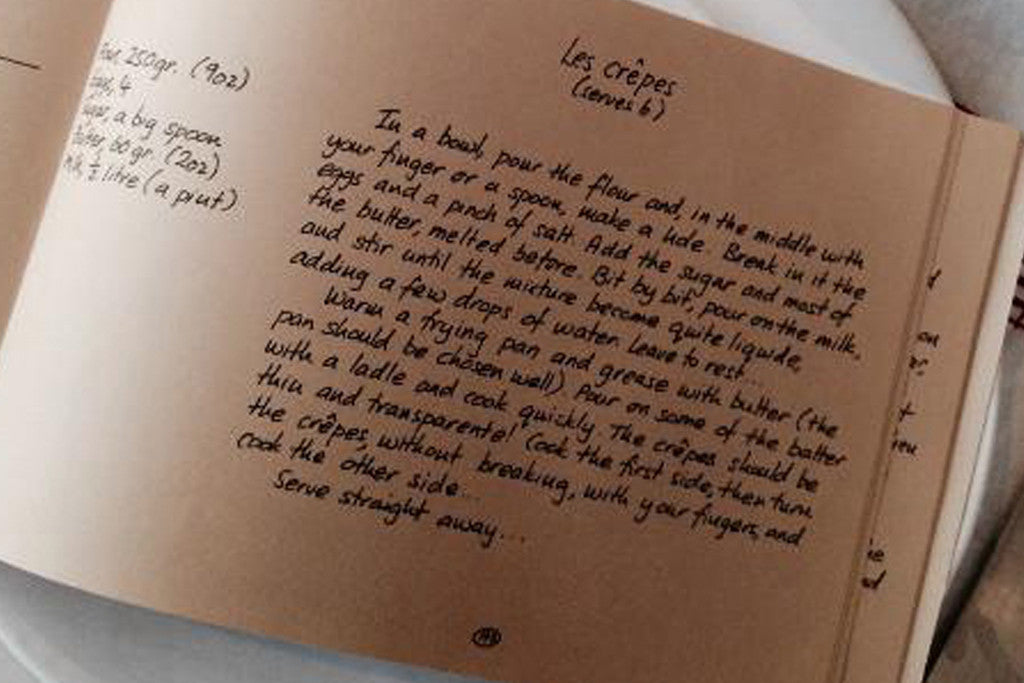 250gr. (9oz)
4
a big spoon
60gr. (2oz)
½ litre (a pint)
Les crêpes
(serves 6)
In a bowl, pour the flour and, in the middle with
your finger or a spoon, make a hole. Break in it the
eggs and a pinch of salt. Add the sugar and most of
the butter, melted before. Bit by bit, pour on the milk,
and stir until the mixture become quite liquide,
adding a few drops of water. Leave to rest...
Warm a frying pan and grease with butter (the
pan should be chosen well). Pour on some of the batter
with a ladle and cook quickly. The crêpes should be
thin and transparente! Cook the first side, then turn
the crêpes, without breaking, with your fingers, and
cook the other side...
Serve straight away...